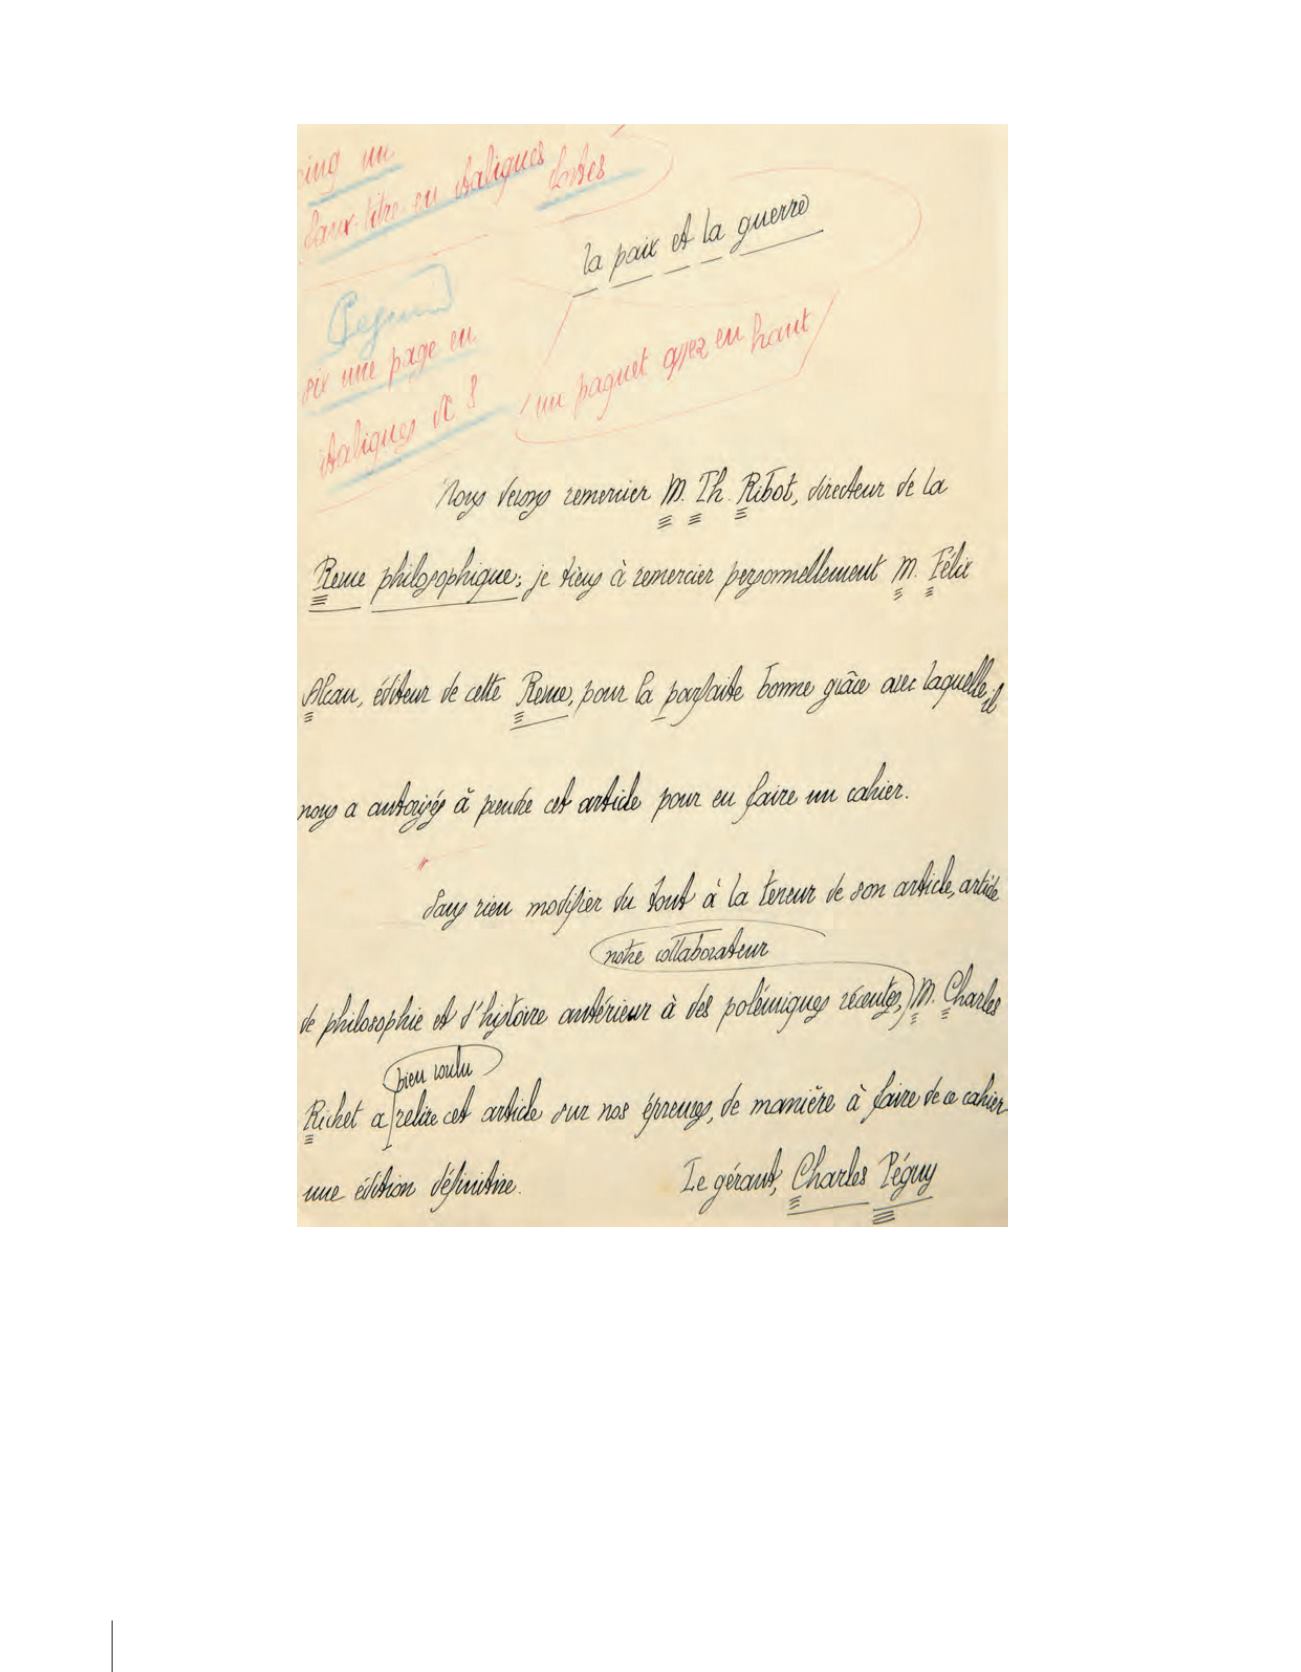 cinq un
faux-titre en italiques
fortes
la paix et la guerre
six une page en
italiques de 8
un paquet assez en haut
Nous devons remercier M. Th. Ribot, directeur de la
Revue philosophique; je tiens à remercier personnellement M. Félix
Alcan, éditeur de cette Revue, pour la parfaite bonne grâce avec laquelle il
nous a autorisés à prendre cet article pour en faire un cahier.
Sans rien modifier du tout à la teneur de son article, article
notre collaborateur
de philosophie et d'histoire antérieur à des polémiques récentes, M. Charles
bien voulu
Richet a relire cet article sur nos épreuves, de manière à faire de ce cahier
une édition définitive. Le gérant, Charles Péguy